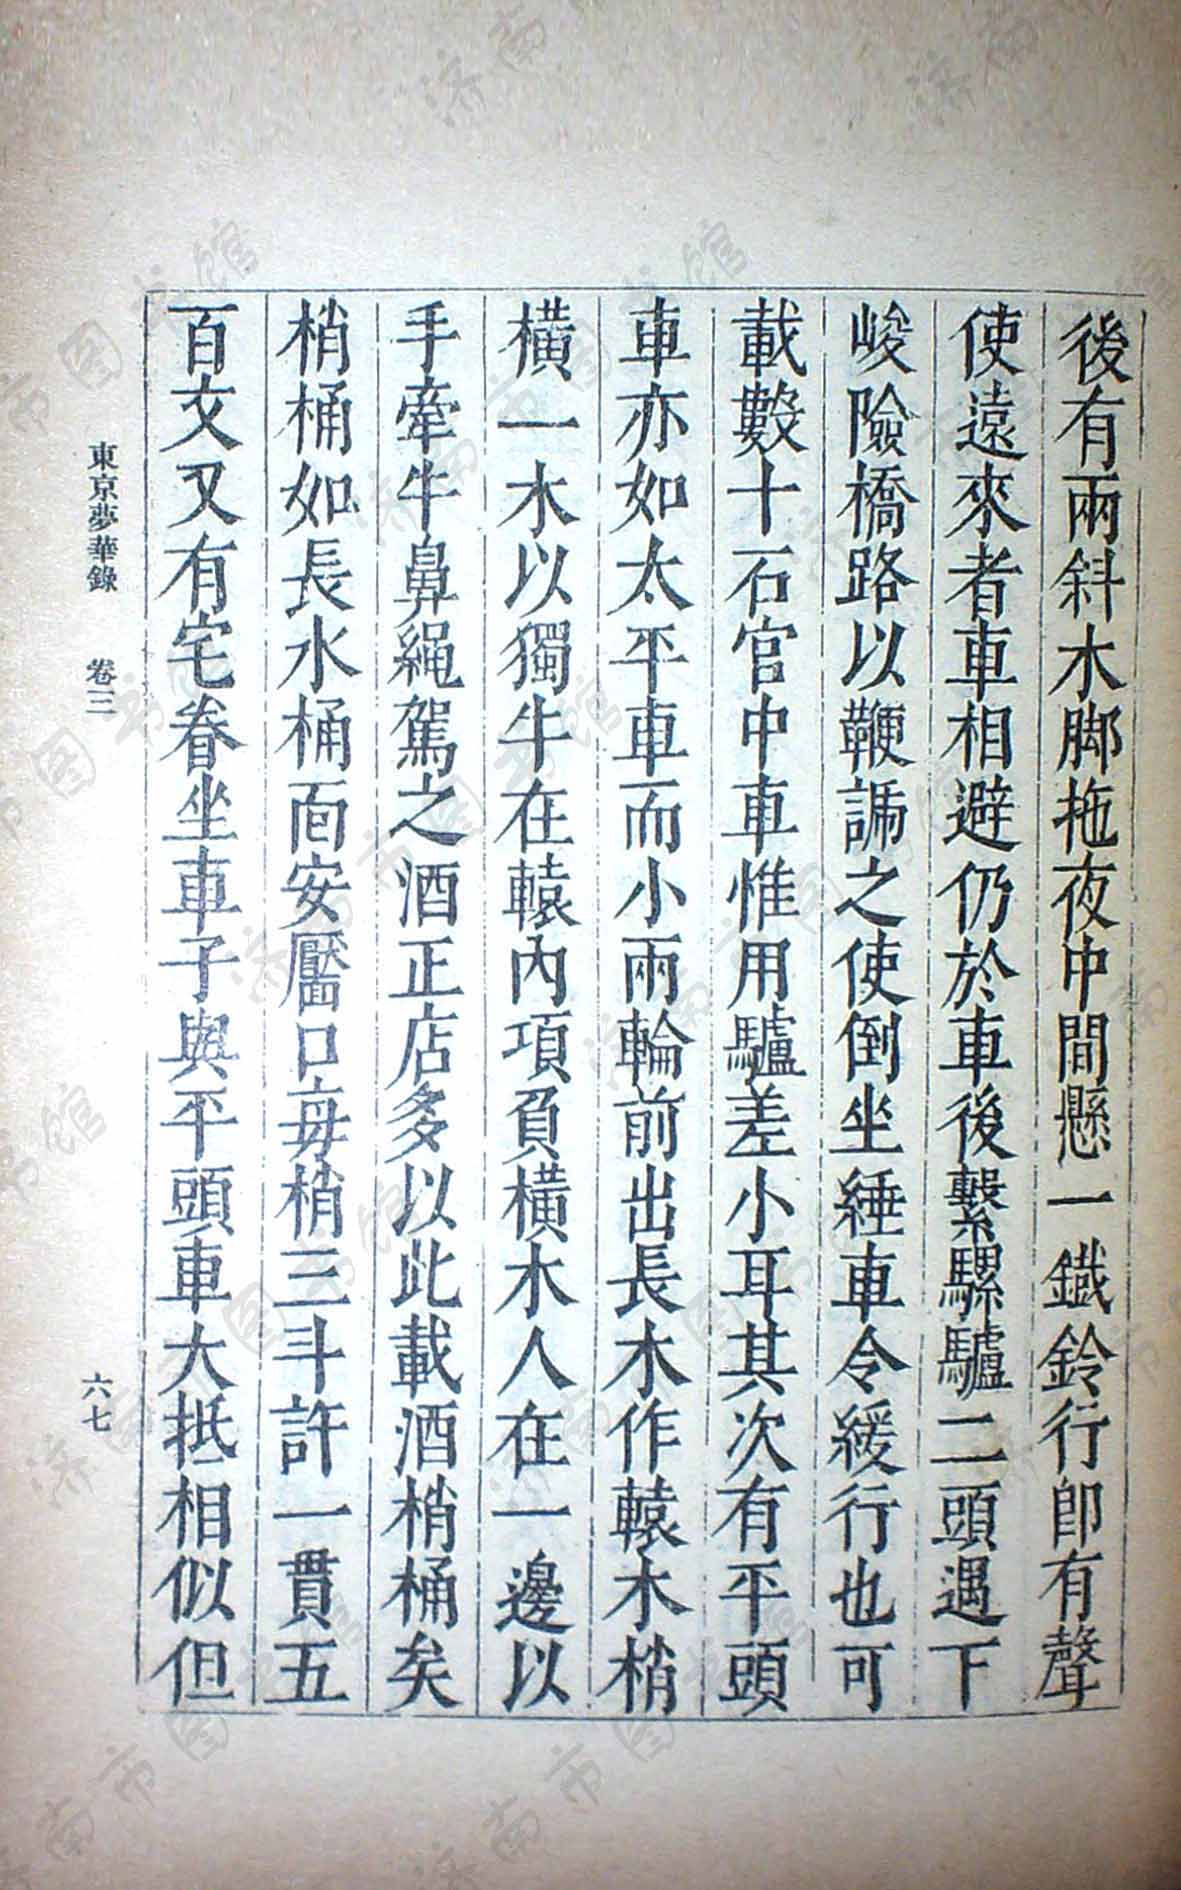 後有兩斜木脚拖夜中間懸一鐵鈴行即有聲
使遠來者車相避仍於車後繫騾驢二頭遇下
峻險橋路以鞭諕之使倒坐綞車令緩行也可
載數十石官中車惟用驢差小耳其次有平頭
車亦如太平車而小兩輪前出長木作轅木梢
橫一木以獨牛在轅內項負橫木人在一邊以
手牽牛鼻繩駕之酒正店多以此載酒梢桶矣
梢桶如長水桶面安靨口每梢三斗許一貫五
百文又有宅眷坐車子與平頭車大抵相似但
東京夢華錄 卷三
六七
济南市图书馆